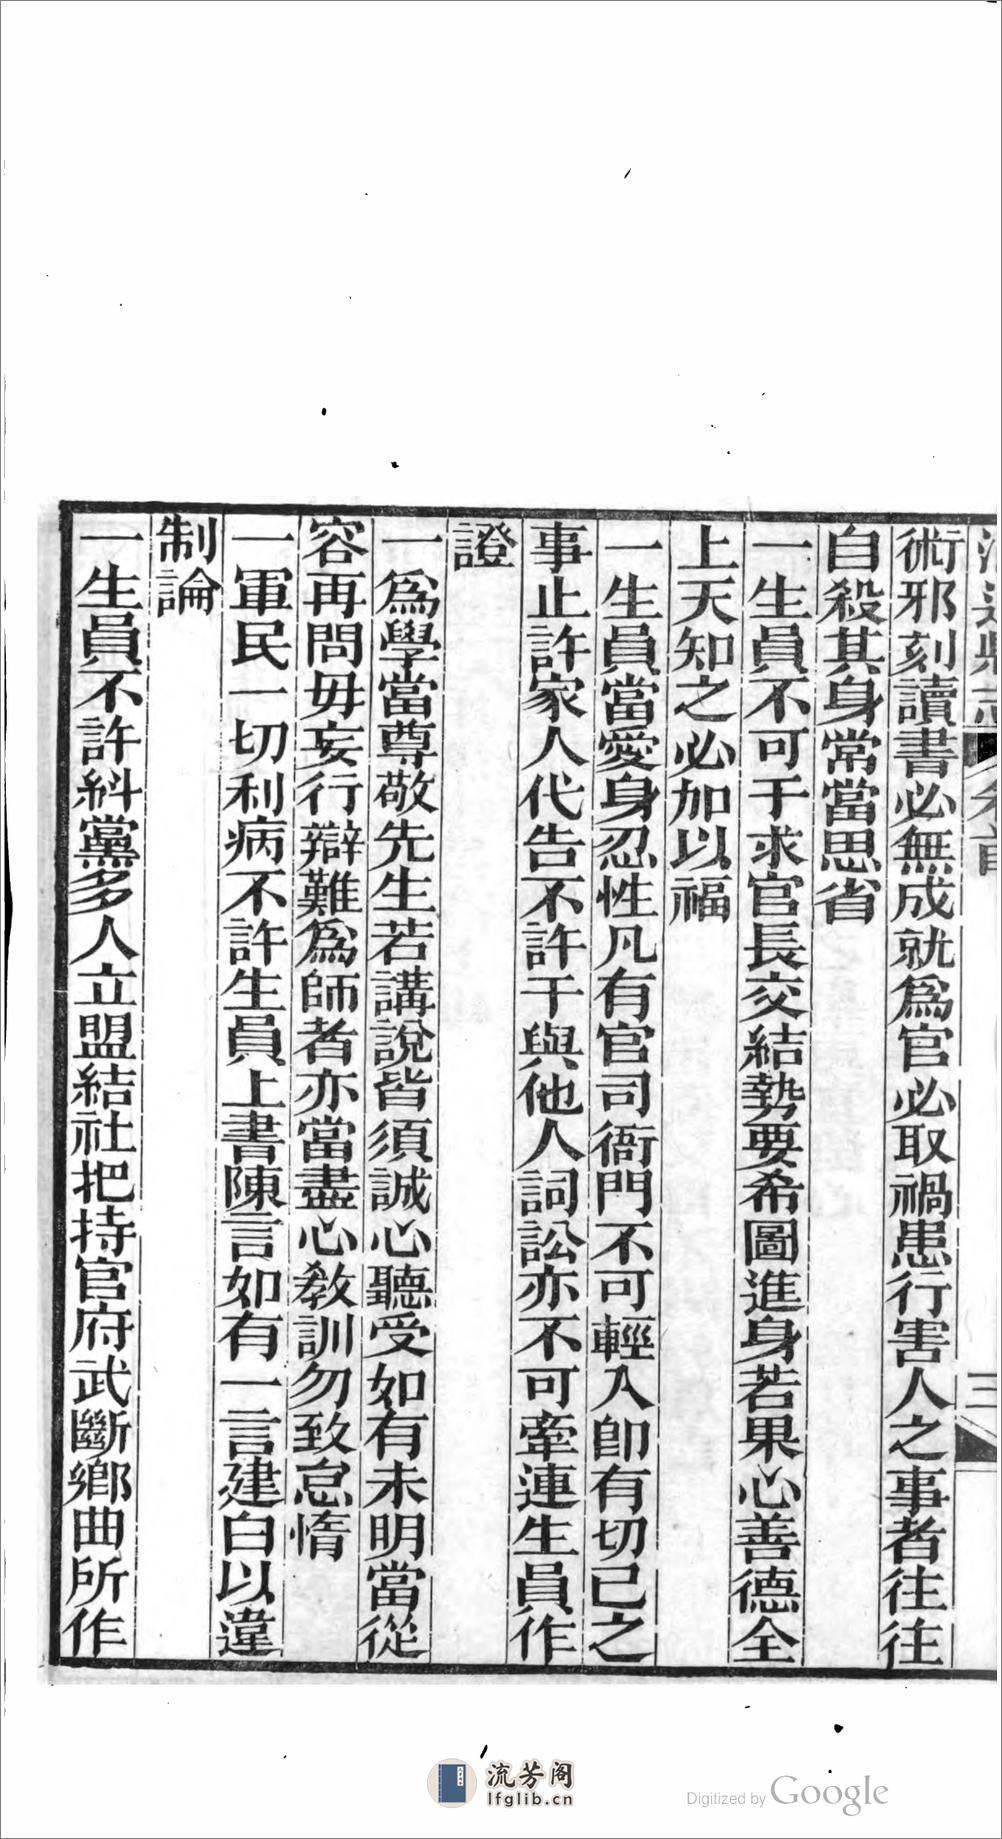 術邪刻讀書必無成就爲官必取禍患行害人之事者往往
自殺其身常當思省
一生員不可干求官長交結勢要希圖進身若果心善德全
上天知之必加以福
一生員當愛身忍性凡有官司衙門不可輕入卽有切己之
事止許家人代告不許干與他人詞訟亦不可牽連生員作
證
一爲學當尊敬先生若講說皆須誠心聽受如有未明當從
容再問毋妄行辯難爲師者亦當盡心教訓勿致怠惰
一軍民一切利病不許生員上書陳言如有一言建白以違
制論
一生員不許糾黨多人立盟結社把持官府武斷鄉曲所作
三
流芳阁
lfglib.cn
Digitized by Google